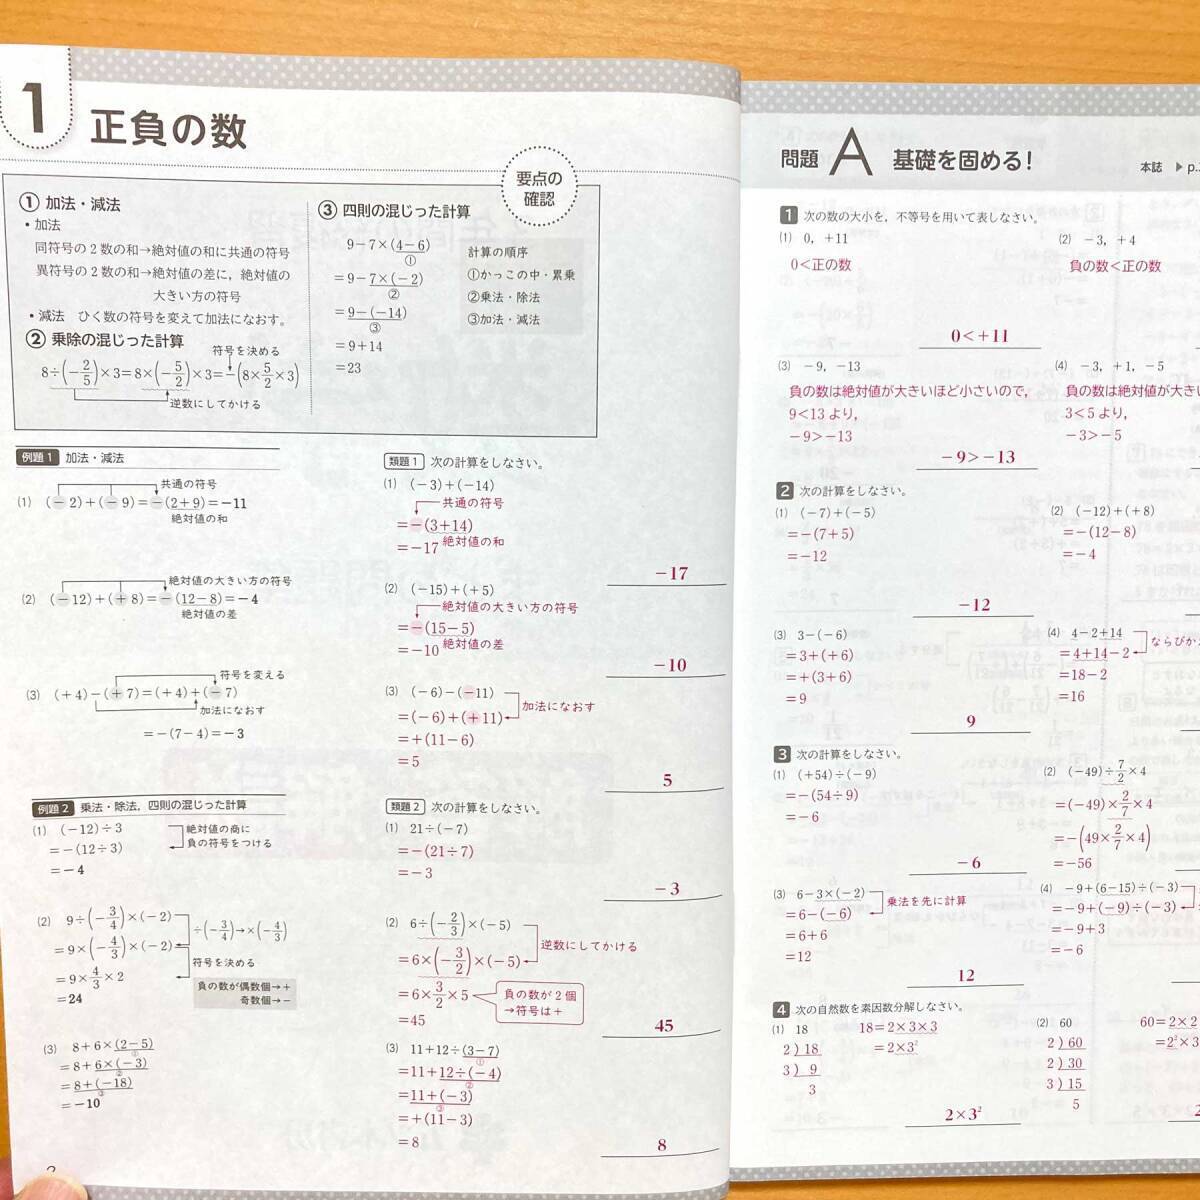 1
正負の数
要点の
確認
① 加法・減法
・加法
同符号の2数の和→絶対値の和に共通の符号
異符号の2数の和→絶対値の差に，絶対値の
大きい方の符号
・減法 ひく数の符号を変えて加法になおす。
② 乗除の混じった計算
符号を決める
8÷(−2/5)×3=8×(−5/2)×3=−(8×5/2×3)
逆数にしてかける
③ 四則の混じった計算
9−7×(4−6)
①
=9−7×(−2)
②
=9−(−14)
③
=9+14
=23
計算の順序
①かっこの中・累乗
②乗法・除法
③加法・減法
例題1 加法・減法
共通の符号
(1) (−2)+(−9)=−(2+9)=−11
絶対値の和
絶対値の大きい方の符号
(2) (−12)+(+8)=−(12−8)=−4
絶対値の差
符号を変える
(3) (+4)−(+7)=(+4)+(−7)
加法になおす
=−(7−4)=−3
類題1 次の計算をしなさい。
(1) (−3)+(−14)
共通の符号
=−(3+14)
=−17 絶対値の和
−17
(2) (−15)+(+5)
絶対値の大きい方の符号
=−(15−5)
=−10 絶対値の差
−10
(3) (−6)−(−11)
加法になおす
=(−6)+(+11)
=+(11−6)
=5
5
例題2 乗法・除法，四則の混じった計算
(1) (−12)÷3
=−(12÷3)
=−4
絶対値の商に
負の符号をつける
(2) 9÷(−3/4)×(−2)
÷(−3/4)→×(−4/3)
=9×(−4/3)×(−2)
符号を決める
=9×4/3×2
=24
負の数が偶数個→+
奇数個→−
(3) 8+6×(2−5)
①
=8+6×(−3)
②
=8+(−18)
③
=−10
類題2 次の計算をしなさい。
(1) 21÷(−7)
=−(21÷7)
=−3
−3
(2) 6÷(−2/3)×(−5)
逆数にしてかける
=6×(−3/2)×(−5)
=6×3/2×5
負の数が2個
→符号は+
=45
45
(3) 11+12÷(3−7)
①
=11+12÷(−4)
②
=11+(−3)
③
=+(11−3)
=8
8
問題 A 基礎を固める！
本誌 ▶p.
1 次の数の大小を，不等号を用いて表しなさい。
(1) 0，+11
0<正の数
0<+11
(2) −3，+4
負の数<正の数
(3) −9，−13
負の数は絶対値が大きいほど小さいので，
9<13より，
−9>−13
−9>−13
(4) −3，+1，−5
負の数は絶対値が大き
3<5より，
−3>−5
2 次の計算をしなさい。
(1) (−7)+(−5)
=−(7+5)
=−12
−12
(2) (−12)+(+8)
=−(12−8)
=−4
(3) 3−(−6)
=3+(+6)
=+(3+6)
=9
9
(4) 4−2+14
ならびか
=4+14−2
=18−2
=16
3 次の計算をしなさい。
(1) (+54)÷(−9)
=−(54÷9)
=−6
−6
(2) (−49)÷7/2×4
=(−49)×2/7×4
=−(49×2/7×4)
=−56
(3) 6−3×(−2)
乗法を先に計算
=6−(−6)
=6+6
=12
12
(4) −9+(6−15)÷(−3)
=−9+(−9)÷(−3)
=−9+3
=−6
4 次の自然数を素因数分解しなさい。
(1) 18
18=2×3×3
=2×3²
2)18
3) 9
3
2×3²
(2) 60
60=2×2
=2²×3
2)60
2)30
3)15
5
2